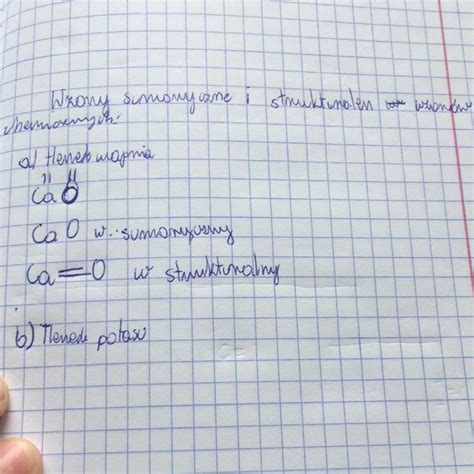 Wzory sumaryczne i strukturalen wzorów
chemicznych.
a) tlenek wapnia
II II
Ca O
CaO w. sumaryczny
Ca=O w strukturalny
b) Tlenek potasu